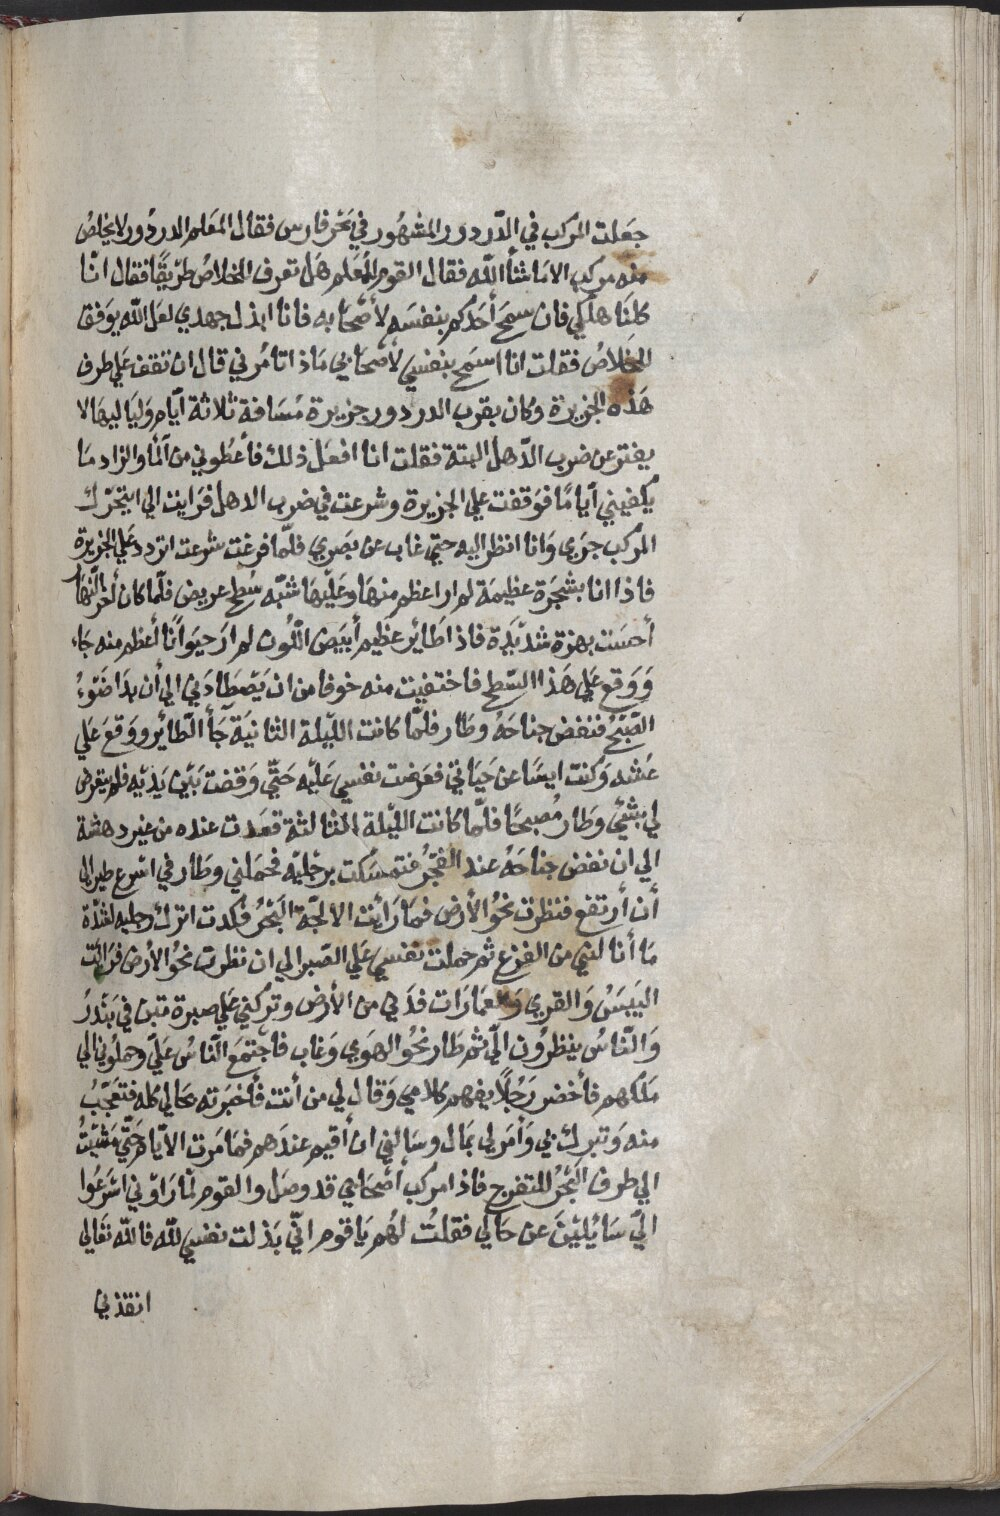 جعلت المركب في الدردور المشهور في بحر فارس فقال المعلم الدردور لا يخلص
منه مركب الا ماشأ الله فقال القوم للمعلم هل تعرف للخلاص طريقا فقال انا
كلنا هلكي فان سمح أحدكم بنفسه لأصحابه فانا ابذل جهدي لعل الله يوفق
الخلاص فقلت انا اسمح بنفسي لأصحابي ماذا تامرني قال ان تقف علي طرف
هذه الجزيرة وكان بقرب الدردور جزيرة مسافة ثلاثة أيام ولياليها لا
يفتر عن ضرب الدهل البتة فقلت انا افعل ذلك فأعطوني من ألما والزاد ما
يكفيني أياما فوقفت علي الجزيرة وشرعت في ضرب الدهل فرايت الي ان يتحرك
المركب جري وانا انظر اليه حتي غاب عن بصري فلما فرغت شرعت اتردد علي الجزيرة
فاذا انا بشجرة عظيمة لم ار اعظم منها وعليها شبه سطح عريض فلما كان أخر النهار
أحسست بهزة شديدة فاذا طائر عظيم أبيض اللون لم ار حيوانا أعظم منه جاء
ووقع علي هذا السطح فاختفيت منه خوفا من ان يصطادني الي أن بدا ضوء
الصبح فنفض جناحه وطار فلما كانت الليلة الثانية جأ الطائر ووقع علي
عشه وكنت ايسا عن حياتي فعرضت نفسي عليه حتي وقفت بين يديه فلم يتعرض
لي بشي وطار مصبحا فلما كانت الليلة الثالثة قعدت عنده من غير دهشة
الي ان نفض جناحه عند الفجر فتمسكت برجليه فحملني وطار في اسرع طير الي
أن أرتفع فنظرت نحو الأرض فما رأيت الا لجة البحر فكدت اترك رجليه لشدة
ما أنالني من الفزع ثم حملت نفسي علي الصبر الي ان نظرت نحو الأرض فرأيت
اليبس والقري والعمارات فدني من الأرض وتركني علي صبرة تبن في بندر
والناس ينظرون الي ثم طار نحو الهوي وغاب فاجتمع الناس علي وحملوني الي
ملكهم فأحضر رجلا يفهم كلامي وقال لي من أنت فأخبرته بحالي كله فتعجب
منه وتبرك بي وأمر لي بمال وسالني ان أقيم عندهم فما مرت الايام حتي مشيت
الي طرف البحر للتفرج فاذا مركب أصحابي قد وصل والقوم لما راوني اسرعوا
الي سائلين عن حالي فقلت لهم ياقوم اني بذلت نفسي لله فالله تعالي
انقذني